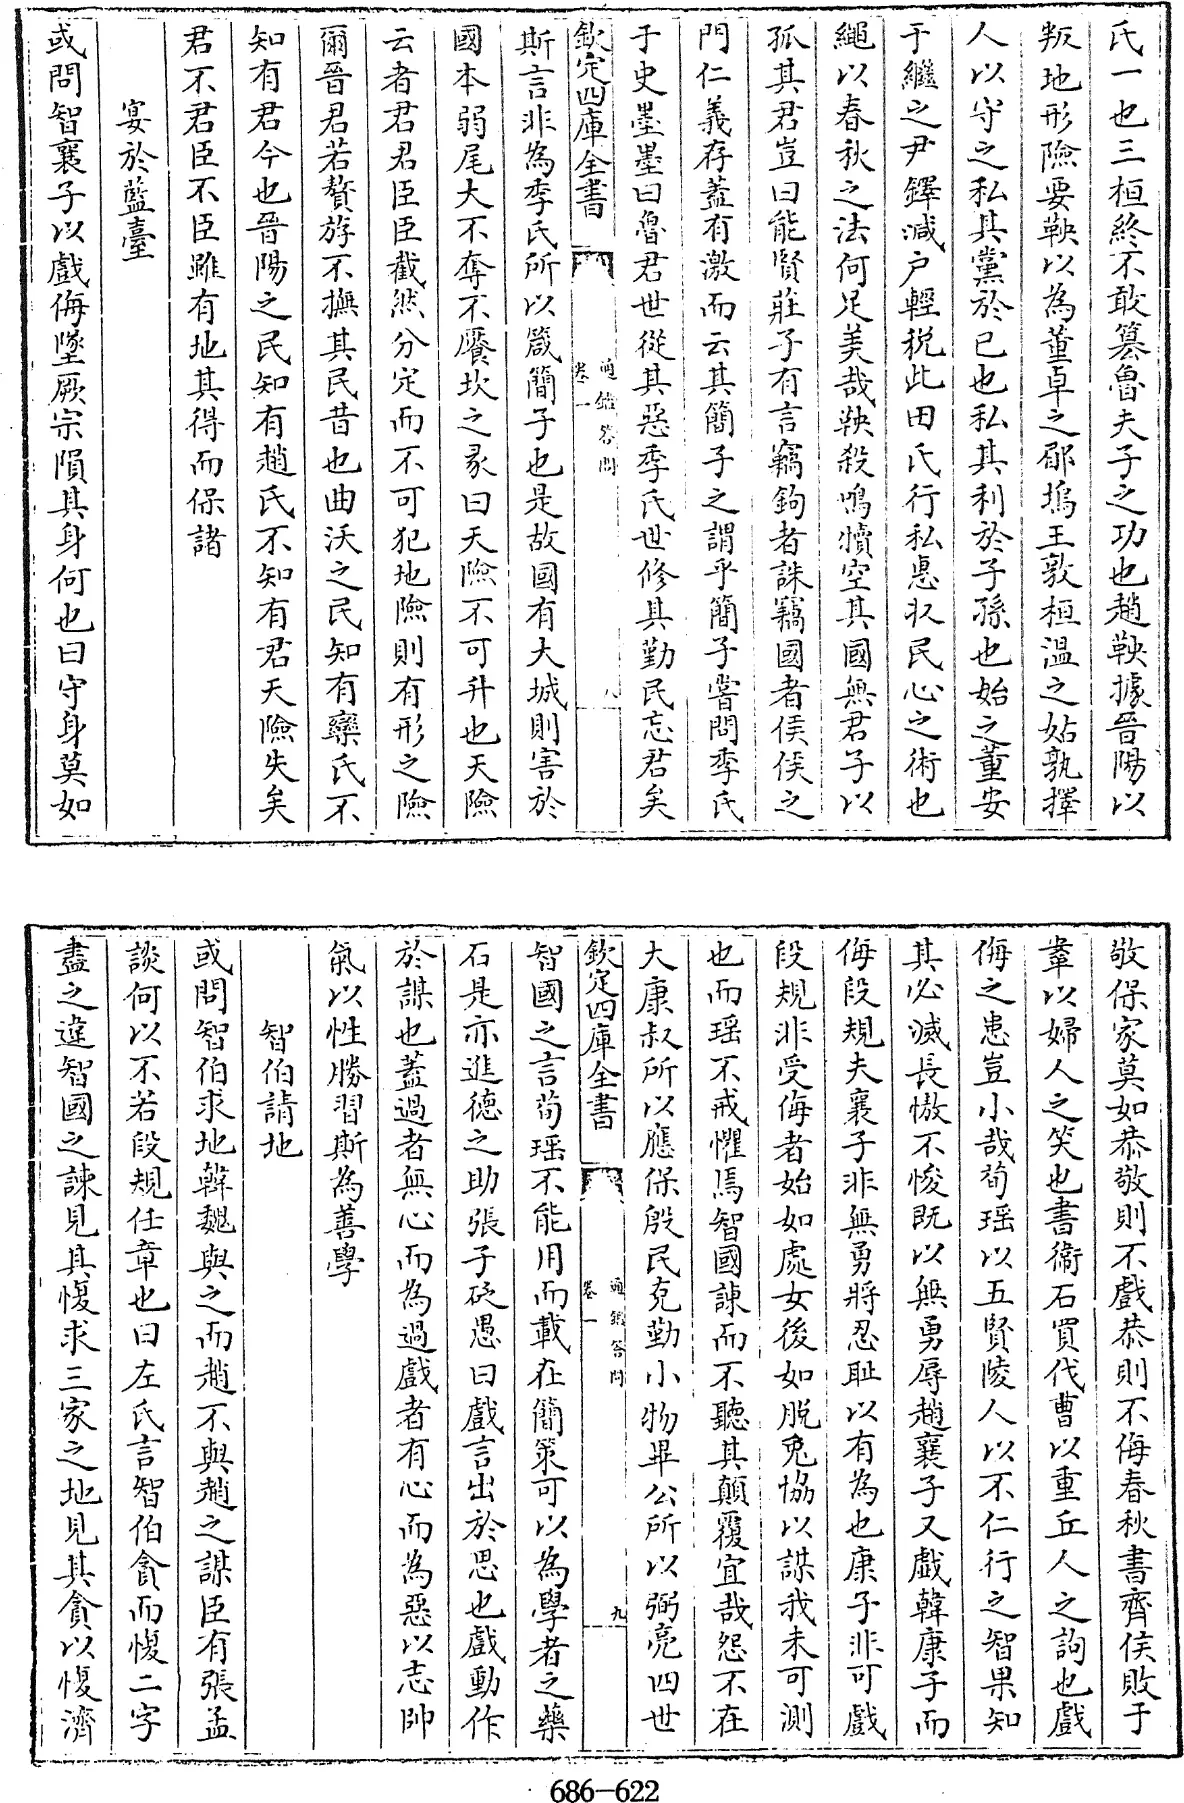 氏一也三桓終不敢簒魯夫子之功也趙鞅據晉陽以
叛地形險要鞅以為董卓之郿塢王敦桓溫之姑孰擇
人以守之私其黨於已也私其利於子孫也始之董安
于繼之尹鐸減户輕税此田氏行私惠収民心之術也
繩以春秋之法何足美哉鞅殺鳴犢空其國無君子以
孤其君豈曰能賢莊子有言竊鉤者誅竊國者侯侯之
門仁義存蓋有激而云其簡子之謂乎簡子嘗問季氏
于史墨墨曰魯君世從其惡季氏世修其勤民忘君矣
欽定四庫全書
通鑑答問
卷一
八
斯言非為季氏所以箴簡子也是故國有大城則害於
國本弱尾大不奪不饜坎之彖曰天險不可升也天險
云者君君臣臣截然分定而不可犯地險則有形之險
爾晉君若贅斿不撫其民昔也曲沃之民知有欒氏不
知有君今也晉陽之民知有趙氏不知有君天險失矣
君不君臣不臣雖有地其得而保諸
宴於藍臺
或問智襄子以戲侮墜厥宗隕其身何也曰守身莫如
敬保家莫如恭敬則不戲恭則不侮春秋書齊侯敗于
鞌以婦人之笑也書衞石買伐曹以重丘人之詢也戲
侮之患豈小哉荀瑶以五賢陵人以不仁行之智果知
其必滅長慠不悛既以無勇辱趙襄子又戲韓康子而
侮段規夫襄子非無勇將忍耻以有為也康子非可戲
段規非受侮者始如處女後如脱兎協以謀我未可測
也而瑶不戒懼焉智國諫而不聽其顛覆宜哉怨不在
大康叔所以應保殷民克勤小物畢公所以弼亮四世
欽定四庫全書
通鑑答問
卷一
九
智國之言荀瑶不能用而載在簡策可以為學者之藥
石是亦進德之助張子砭愚曰戲言出於思也戲動作
於謀也蓋過者無心而為過戲者有心而為惡以志帥
氣以性勝習斯為善學
智伯請地
或問智伯求地韓魏與之而趙不與趙之謀臣有張孟
談何以不若段規任章也曰左氏言智伯貪而愎二字
盡之違智國之諫見其愎求三家之地見其貪以愎濟
686-622